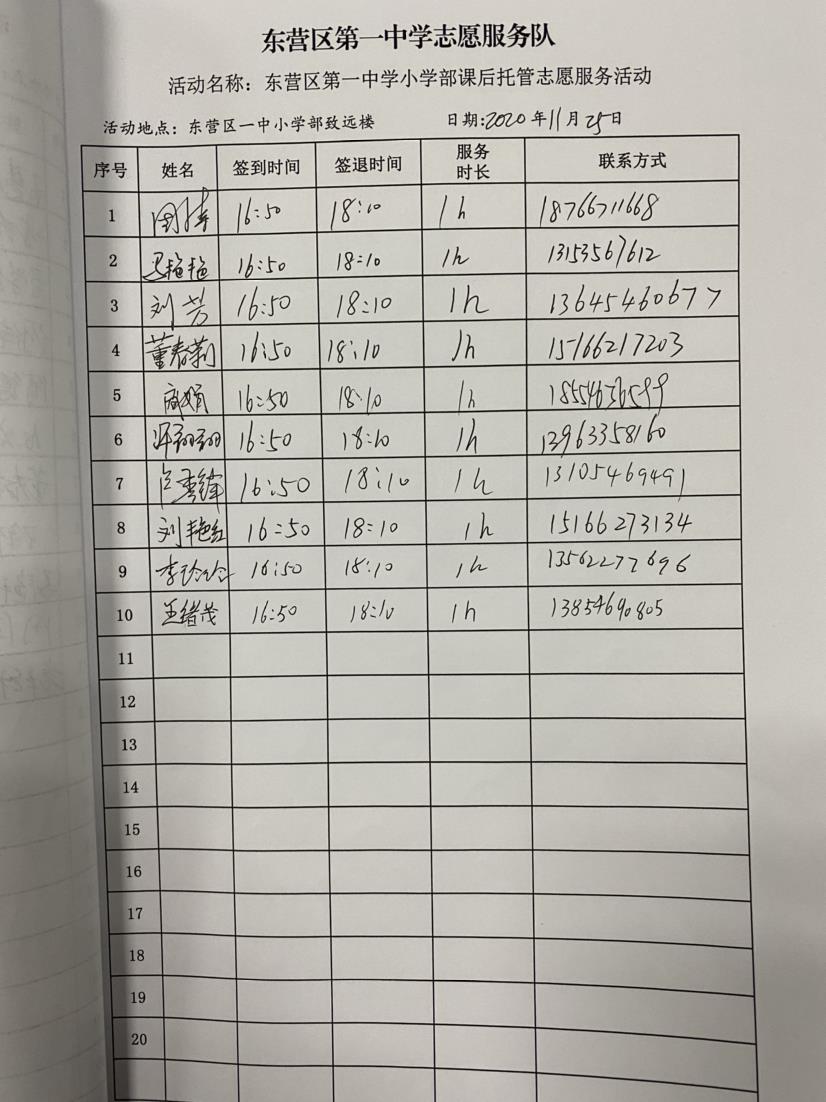 东营区第一中学志愿服务队
活动名称：东营区第一中学小学部课后托管志愿服务活动
活动地点：东营区一中小学部致远楼 日期:2020年11月25日
序号 姓名 签到时间 签退时间 服务时长 联系方式
1 16:50 18:10 1h 18766711668
2 马艳艳 16:50 18:10 1h 13153567612
3 刘芳 16:50 18:10 1h 13645460677
4 董春莉 16:50 18:10 1h 15166217203
5 16:50 18:10 1h 18554636599
6 16:50 18:10 1h 13963358160
7 16:50 18:10 1h 13105469491
8 刘艳红 16:50 18:10 1h 15166273134
9 李玲玲 16:50 18:10 1h 13562277696
10 王绪茂 16:50 18:10 1h 13854690805
11
12
13
14
15
16
17
18
19
20